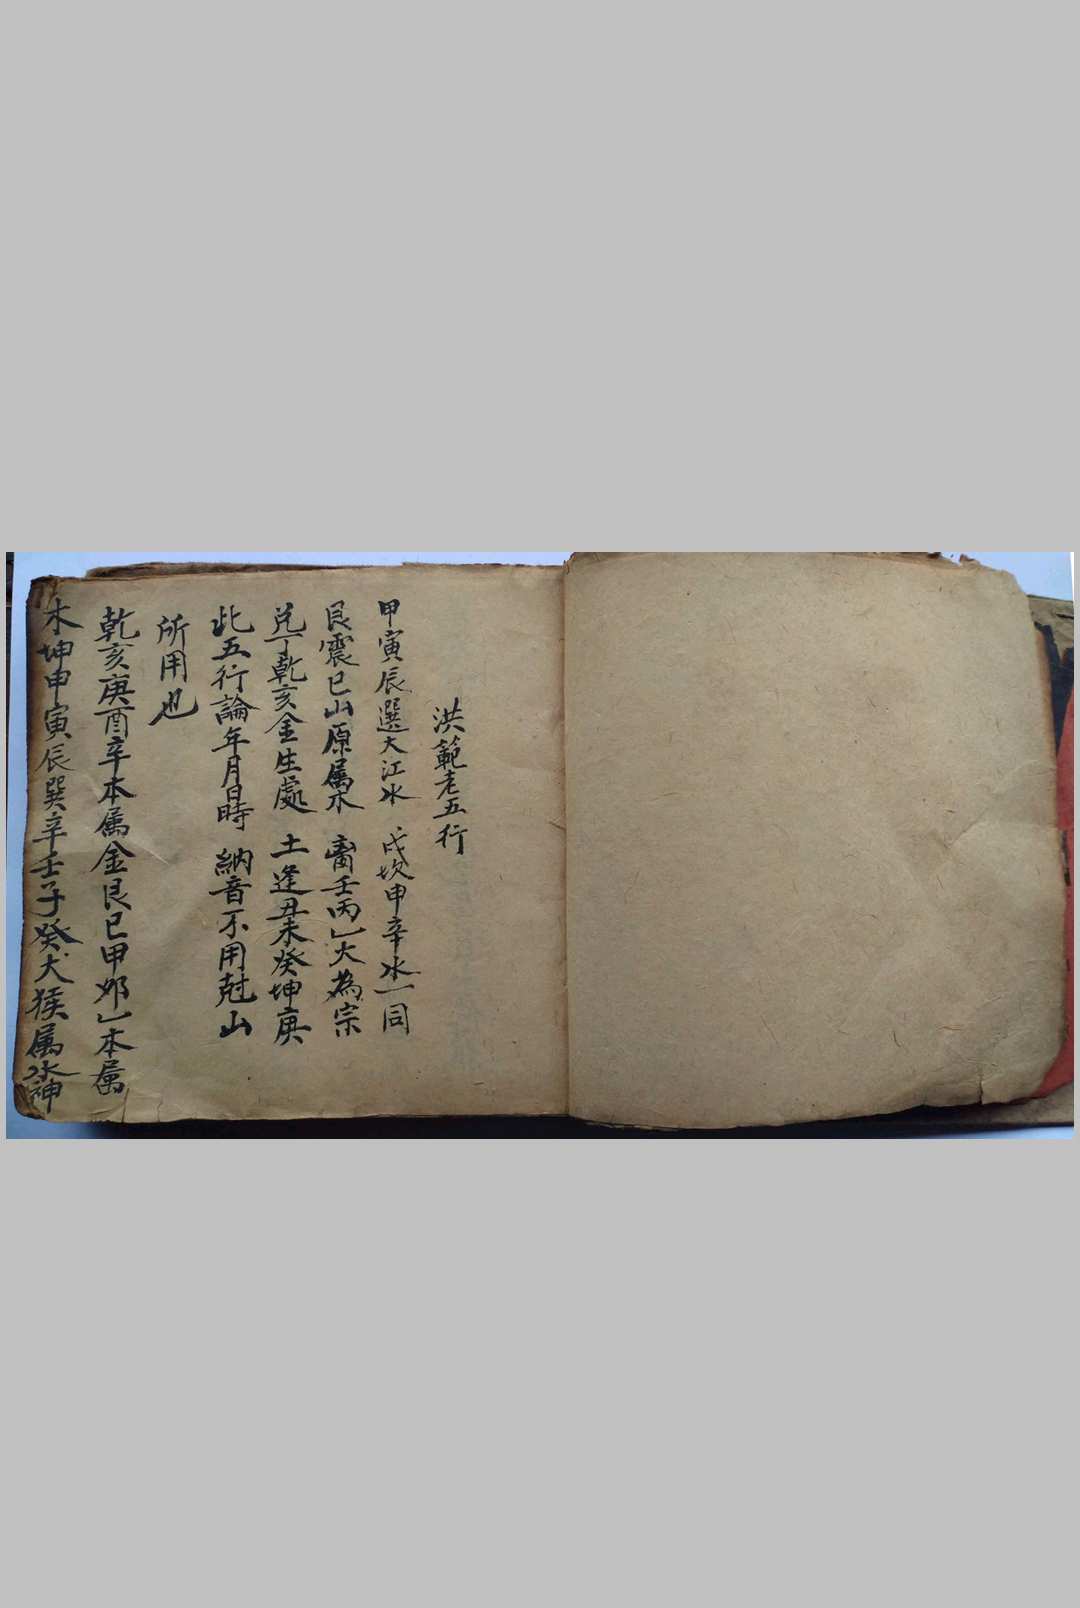 洪範老五行
甲寅辰選大江水 戌坎申辛水一同
艮震巳山原属木 离壬丙乚火為宗
兑丁乾亥金生處 土逢丑未癸坤庚
此五行論年月日時 納音不用尅山
所用也
乾亥庚酉辛本属金艮巳甲夘乚本属
木坤申寅辰巽辛壬子癸犬猴属水神